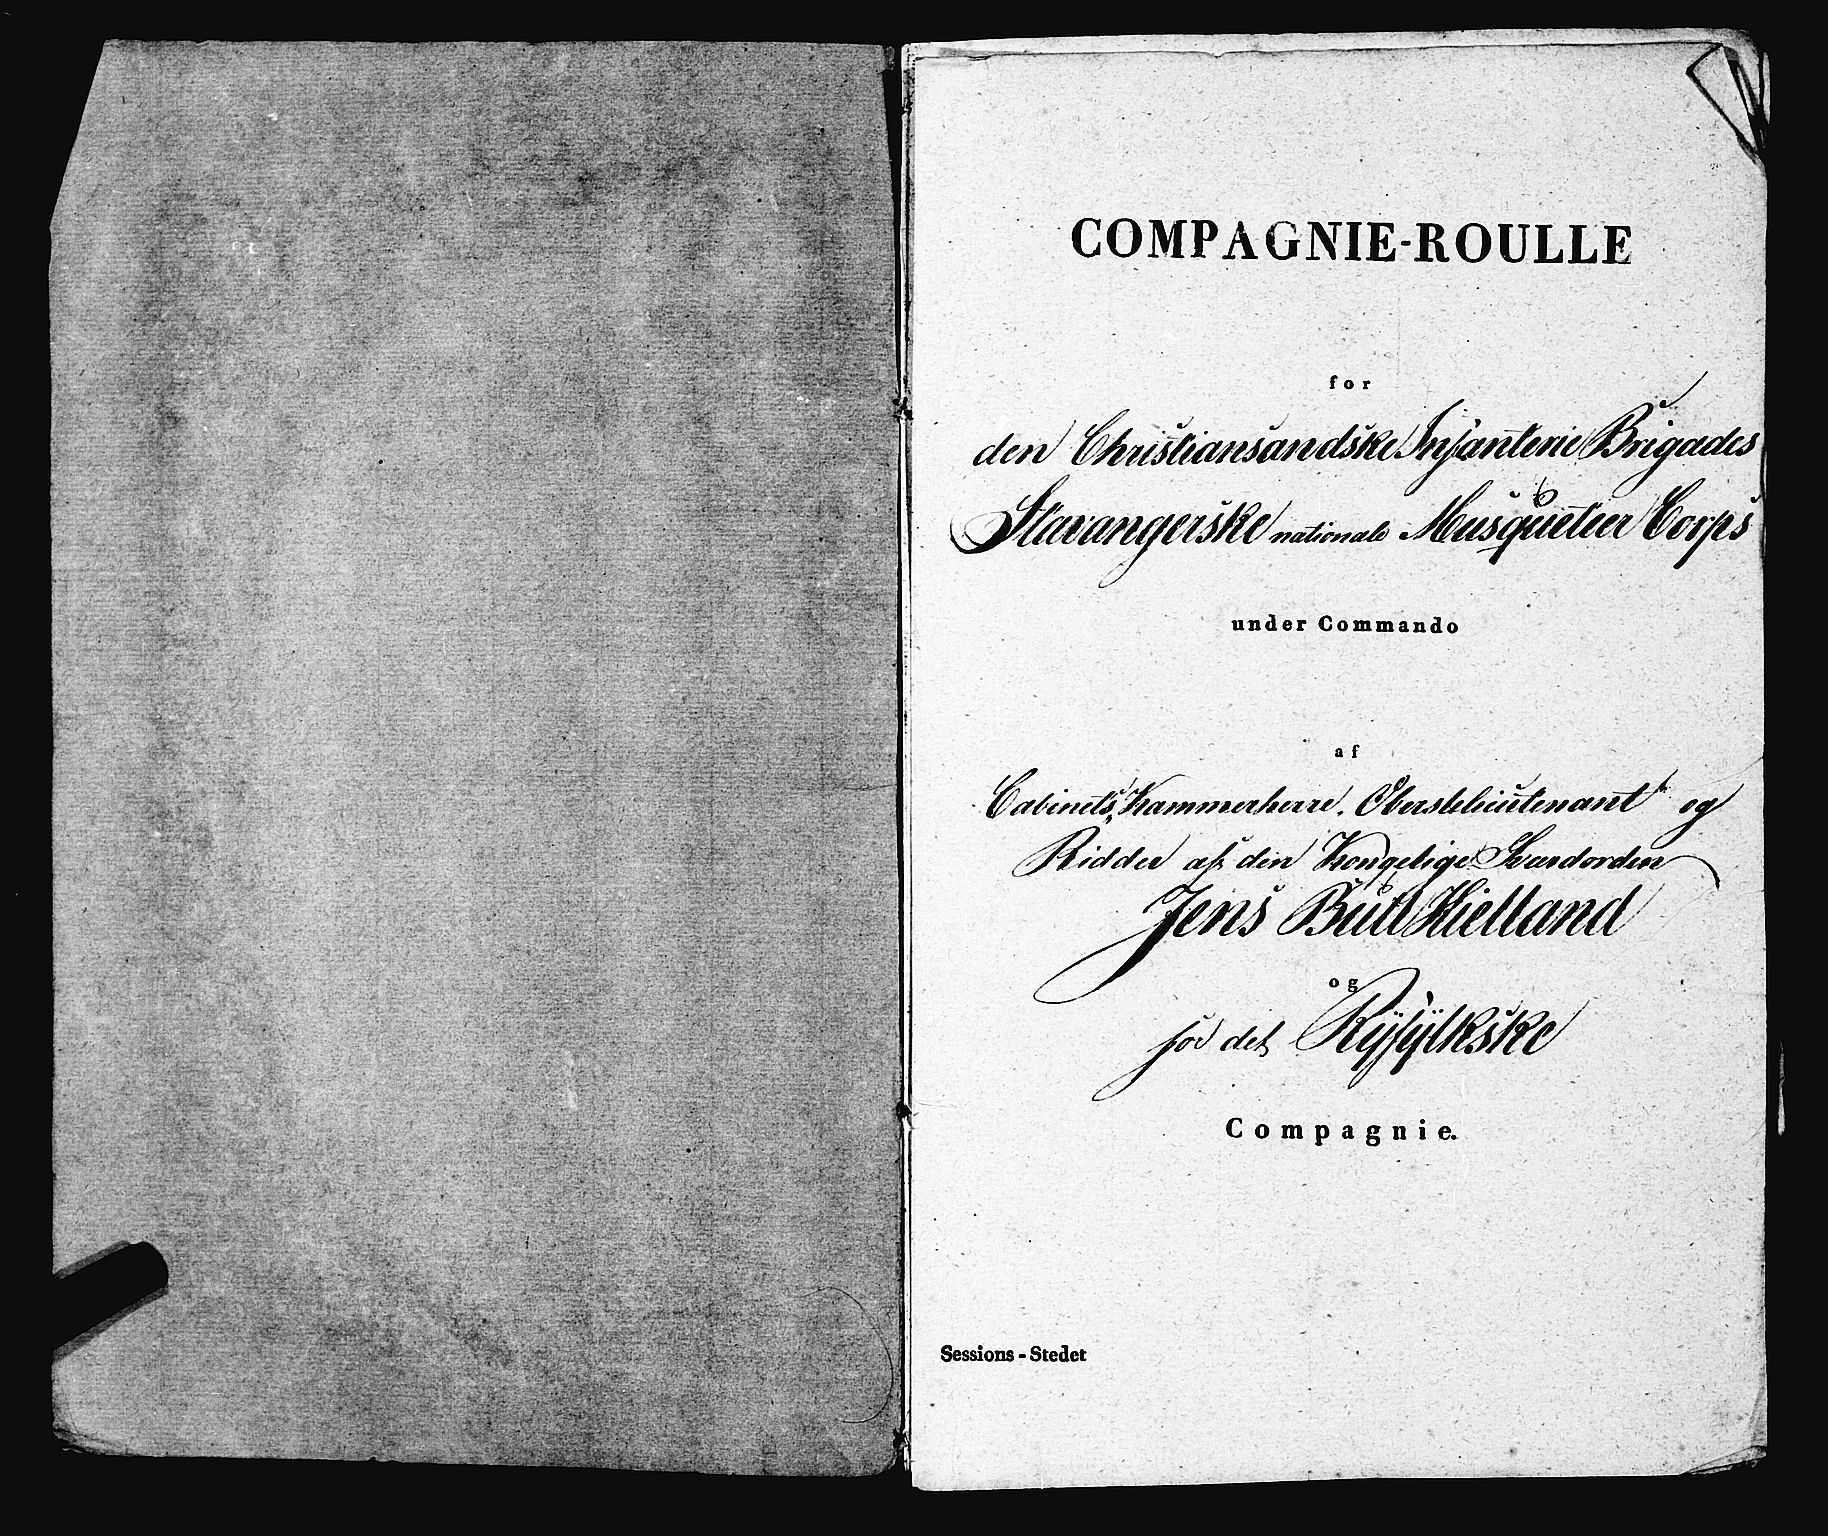 COMPAGNIE-ROULLE
for
den Christiansandske Infanterie Brigades
Stavangerske nationale Musqueteer Corps
under Commando
af
Cabinets Kammerherre, Obersteleieutenant og
Ridder af den Kongelige Sværdorden
Jens Bull Kielland
og
for det Ryfylkske
Compagnie.
Sessions-Stedet